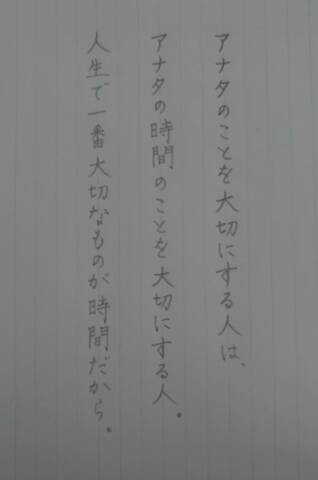 アナタのことを大切にする人は、
アナタの時間のことを大切にする人。
人生で一番大切なものが時間だから。